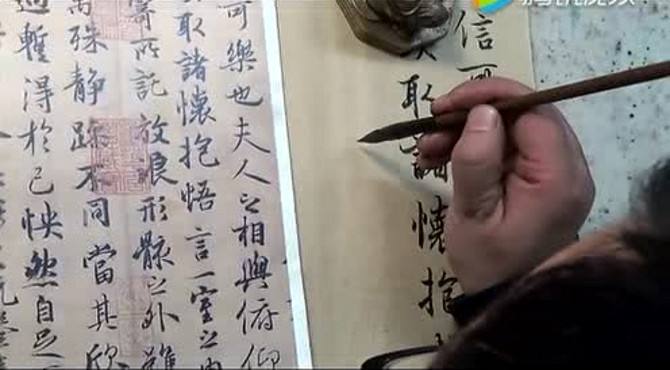 信可
取諸懷抱
可樂也夫人之相與俯仰
取諸懷抱悟言一室之內
寄所託放浪形骸之外雖
萬殊静躁不同當其欣
遇暫得於己怏然自足